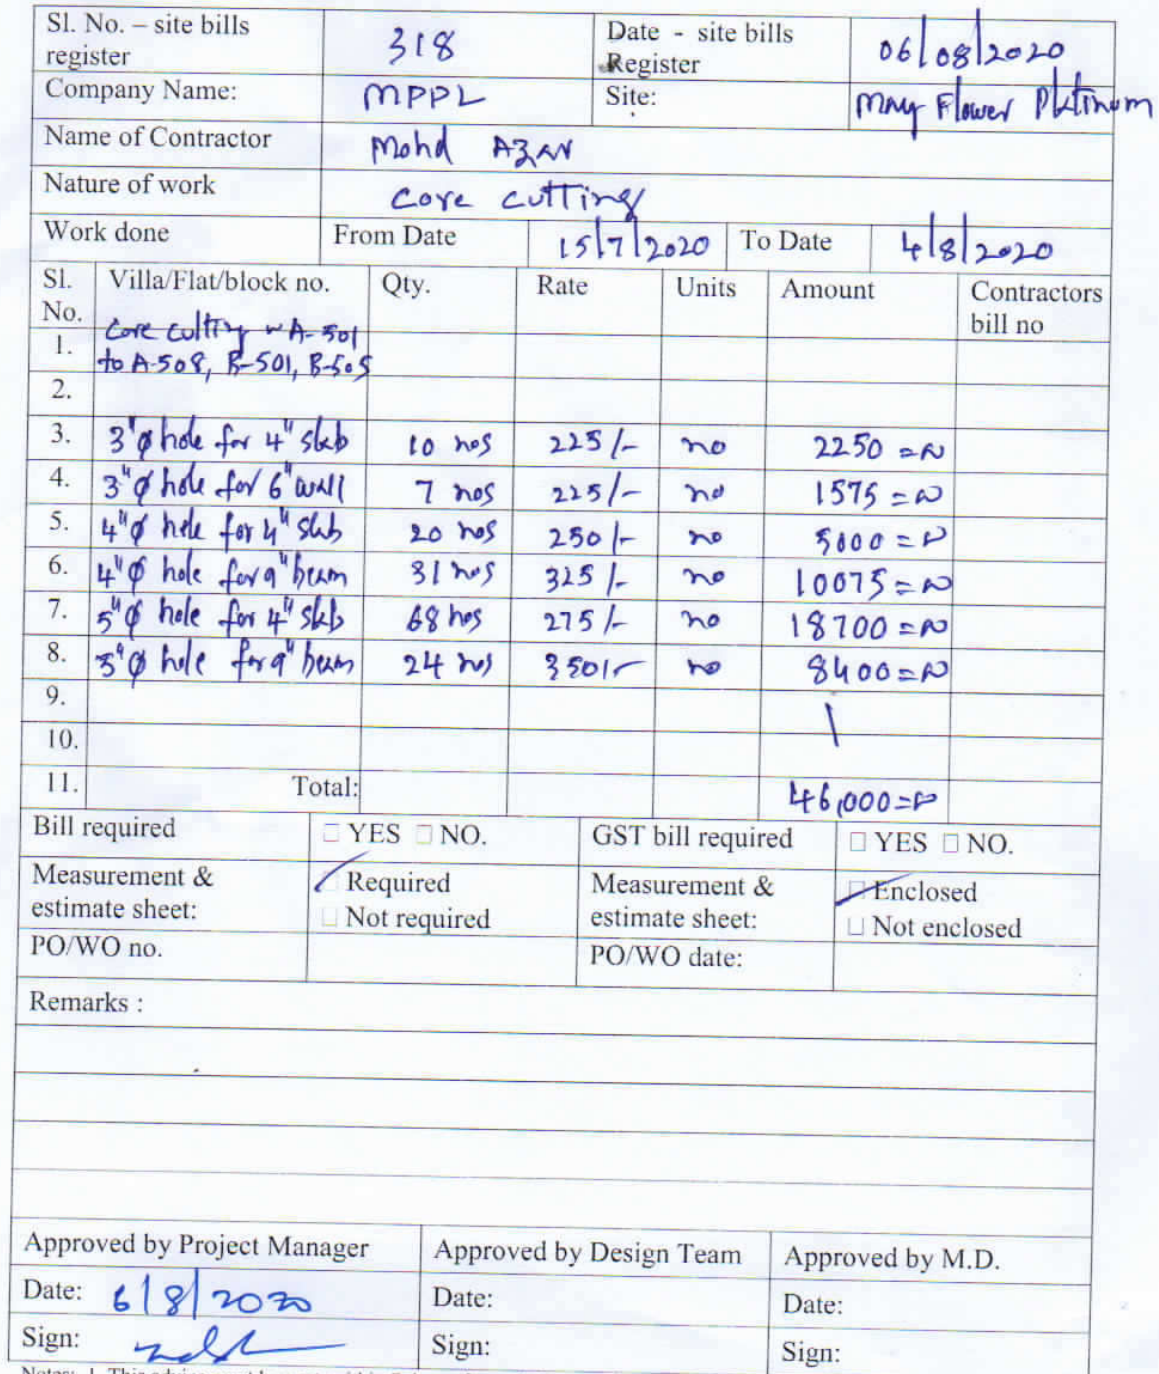 Sl. No. – site bills register 318 Date - site bills Register 06/08/2020
Company Name: MPPL Site: May Flower Platinum
Name of Contractor Mohd Azar
Nature of work Core cutting
Work done From Date 15/7/2020 To Date 4/8/2020
Sl. No. Villa/Flat/block no. Qty. Rate Units Amount Contractors bill no
Core cutting A-501
1. to A-508, B-501, B-505
2.
3. 3"φ hole for 4" slab 10 nos 225/- no 2250=00
4. 3"φ hole for 6" wall 7 nos 225/- no 1575=00
5. 4"φ hole for 4" slab 20 nos 250/- no 5000=00
6. 4"φ hole for 9" beam 31 nos 325/- no 10075=00
7. 5"φ hole for 4" slab 68 nos 275/- no 18700=00
8. 5"φ hole for 9" beam 24 nos 350/- no 8400=00
9.
10.
11. Total: 46,000=00
Bill required □ YES □ NO. GST bill required □ YES □ NO.
Measurement & estimate sheet: □ Required □ Not required Measurement & estimate sheet: □ Enclosed □ Not enclosed
PO/WO no. PO/WO date:
Remarks :
Approved by Project Manager Approved by Design Team Approved by M.D.
Date: 6/8/2020 Date: Date:
Sign: Sign: Sign: